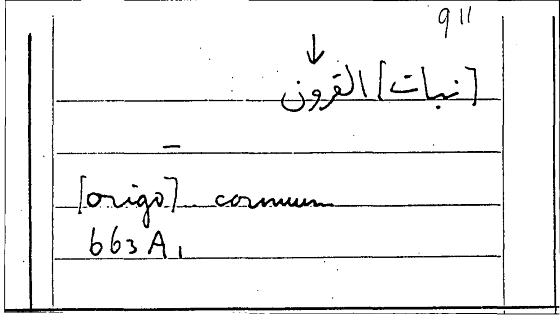 911
↓
[نبات] القرون
–
[origo] cornuum
663 A,